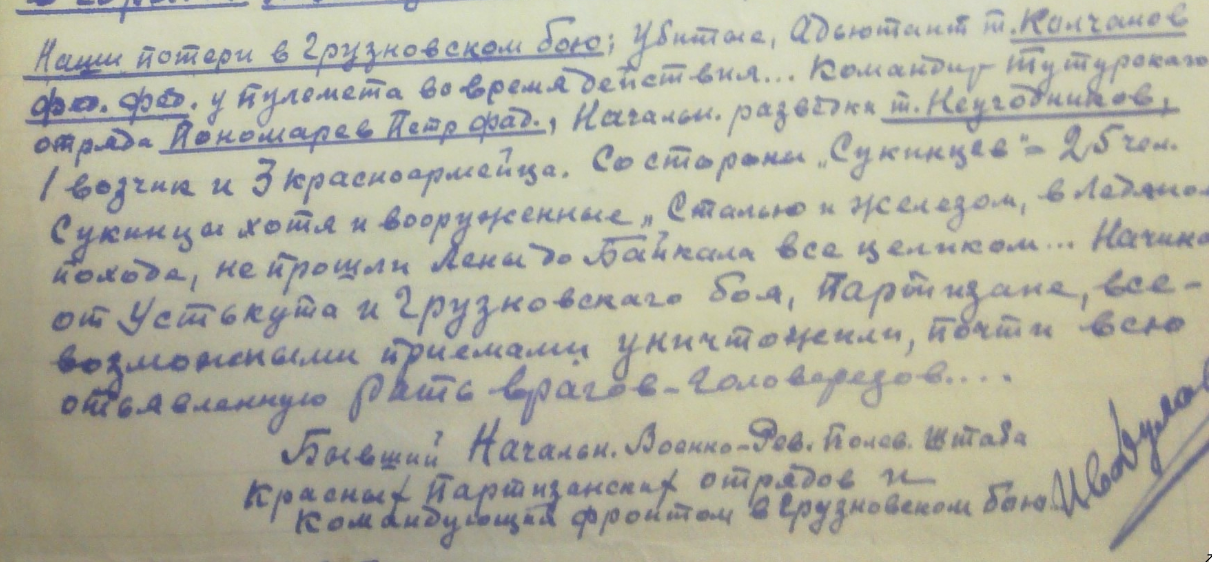 Наши потери в Грузновском бою; Убитые, Адьютант т. Колчанов
фед. фед. у пулемета во время действия... Командир Тутурскаго
отряда Пономарев Петр фад., Начальн. разведки т. Неугодников,
1 возчик и 3 красноармейца. Со стороны „Сукинцев" = 25 чел.
Сукинцы хотя и вооруженные „Сталью и железом, в Ледяном
походе, не прошли Лены до Байкала все целиком... Начиная
от Устькута и Грузновскаго боя, Партизане, все-
возможными приемами уничтожили, почти всю
отъявленную Рать врагов-головорезов....
Бывший Начальн. Военно-Рев. Полев. Штаба
Красных Партизанских отрядов и
Командующий фронтом в Грузновском бою